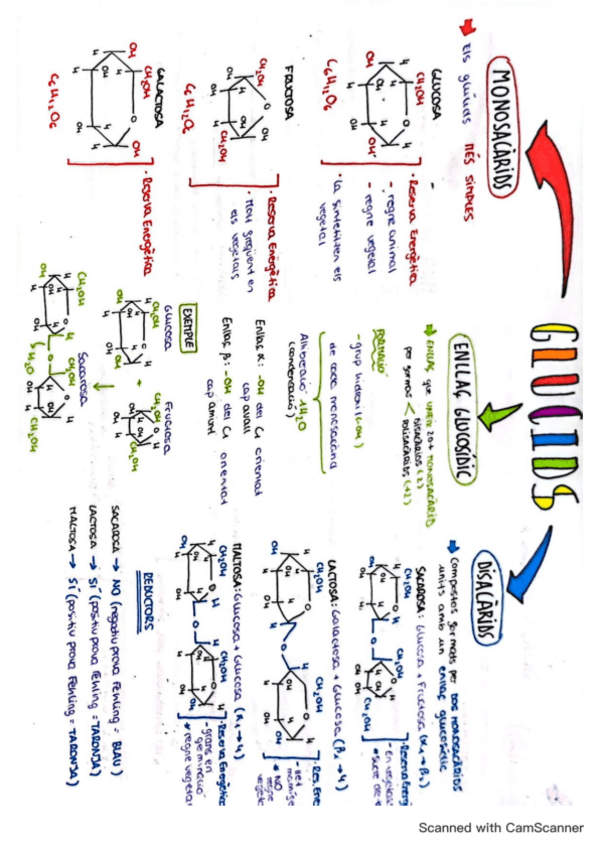 GLUCIDS
MONOSACÀRIDS
Els glúcids MÉS SIMPLES
GLUCOSA
CH₂OH
H
OH
C₆H₁₂O₆
· Reserva Energètica
- regne animal
- regne vegetal
· La sintetitzen els
vegetal
FRUCTOSA
CH₂OH
OH
H
CH₂OH
C₆H₁₂O₆
· Reserva Energètica
· Molt freqüent en
els vegetals
GALACTOSA
CH₂OH
OH
H
C₆H₁₂O₆
· Reserva Energètica
ENLLAÇ GLUCOSÍDIC
ENLLAÇ que uneix 2o+ MONOSACÀRID
per formar
DISACÀRIDS (2)
POLISACÀRIDS (+2)
FORMACIÓ
- grup hidroxil (-OH)
de cada monosacàrid
Alliberació 1H₂O
(condensació)
Enllaç α: -OH del C₁ orientat
cap avall
Enllaç β: -OH del C₁ orientat
cap amunt
EXEMPLE
Glucosa
+
Fructosa
CH₂OH
Sacarosa
CH₂OH
O
H₂O
CH₂OH
DISACÀRIDS
Compostos formats per DOS MONOSACÀRIDS
units amb un enllaç glucosídic
SACAROSA: Glucosa + Fructosa (α₁→β₂)
CH₂OH
O
CH₂OH
· Reserva Energ
- En vegetals
LACTOSA: Galactosa + Glucosa (β₁→4)
CH₂OH
O
CH₂OH
· Res. Ene
MALTOSA: Glucosa + Glucosa (α₁→4)
CH₂OH
O
CH₂OH
· Reserva Energètica
- grans en
germinació
regne vegetal
REDUCTORS
SACAROSA → NO (negatiu prova Fehling = BLAU)
LACTOSA → SÍ (positiu prova Fehling = TARONJA)
MALTOSA → SÍ (positiu prova Fehling = TARONJA)
Scanned with CamScanner